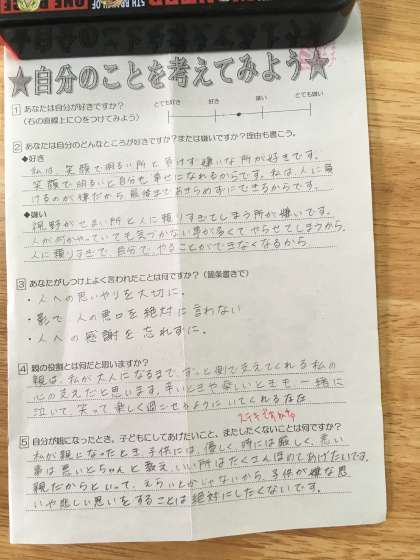 5TH BRANCH OF
★自分のことを考えてみよう★
1 あなたは自分が好きですか？
（右の直線上に○をつけてみよう）
とても好き 好き 嫌い とても嫌い
2 あなたは自分のどんなところが好きですか？または嫌いですか？理由も書こう。
◆好き
私は、笑顔で明るい所と負けず嫌いな所が好きです。
笑顔で明るいと自分も幸せになれるからです。私は、人に負
けるのが嫌だから最後まであきらめずにできるからです。
◆嫌い
視野がせまい所と人に頼りすぎてしまう所が嫌いです。
人が何かやっていても気づかない事が多くてやらせてしまうから。
人に頼りすぎて、自分で、やることができなくなるから
3 あなたがしつけ上よく言われたことは何ですか？（箇条書きで）
・人への思いやりを大切に。
・影で人の悪口を絶対に言わない
・人への感謝を忘れずに。
4 親の役割とは何だと思いますか？
親は、私が大人になるまで、ずっと側で支えてくれる私の
心の支えだと思います。辛いときや楽しいときも、一緒に
泣いて、笑って楽しく過ごせるようにいてくれる存在
ステキですね
5 自分が親になったとき、子どもにしてあげたいこと、またしたくないことは何ですか？
私が親になったとき、子供には、優しく、時には厳しく、悪い
事は悪いとちゃんと教え、いい所はたくさんほめてあげたいです。
親だからといって、えらいとかじゃないから、子供が嫌な思
いや悲しい思いをすることは絶対にしたくないです。